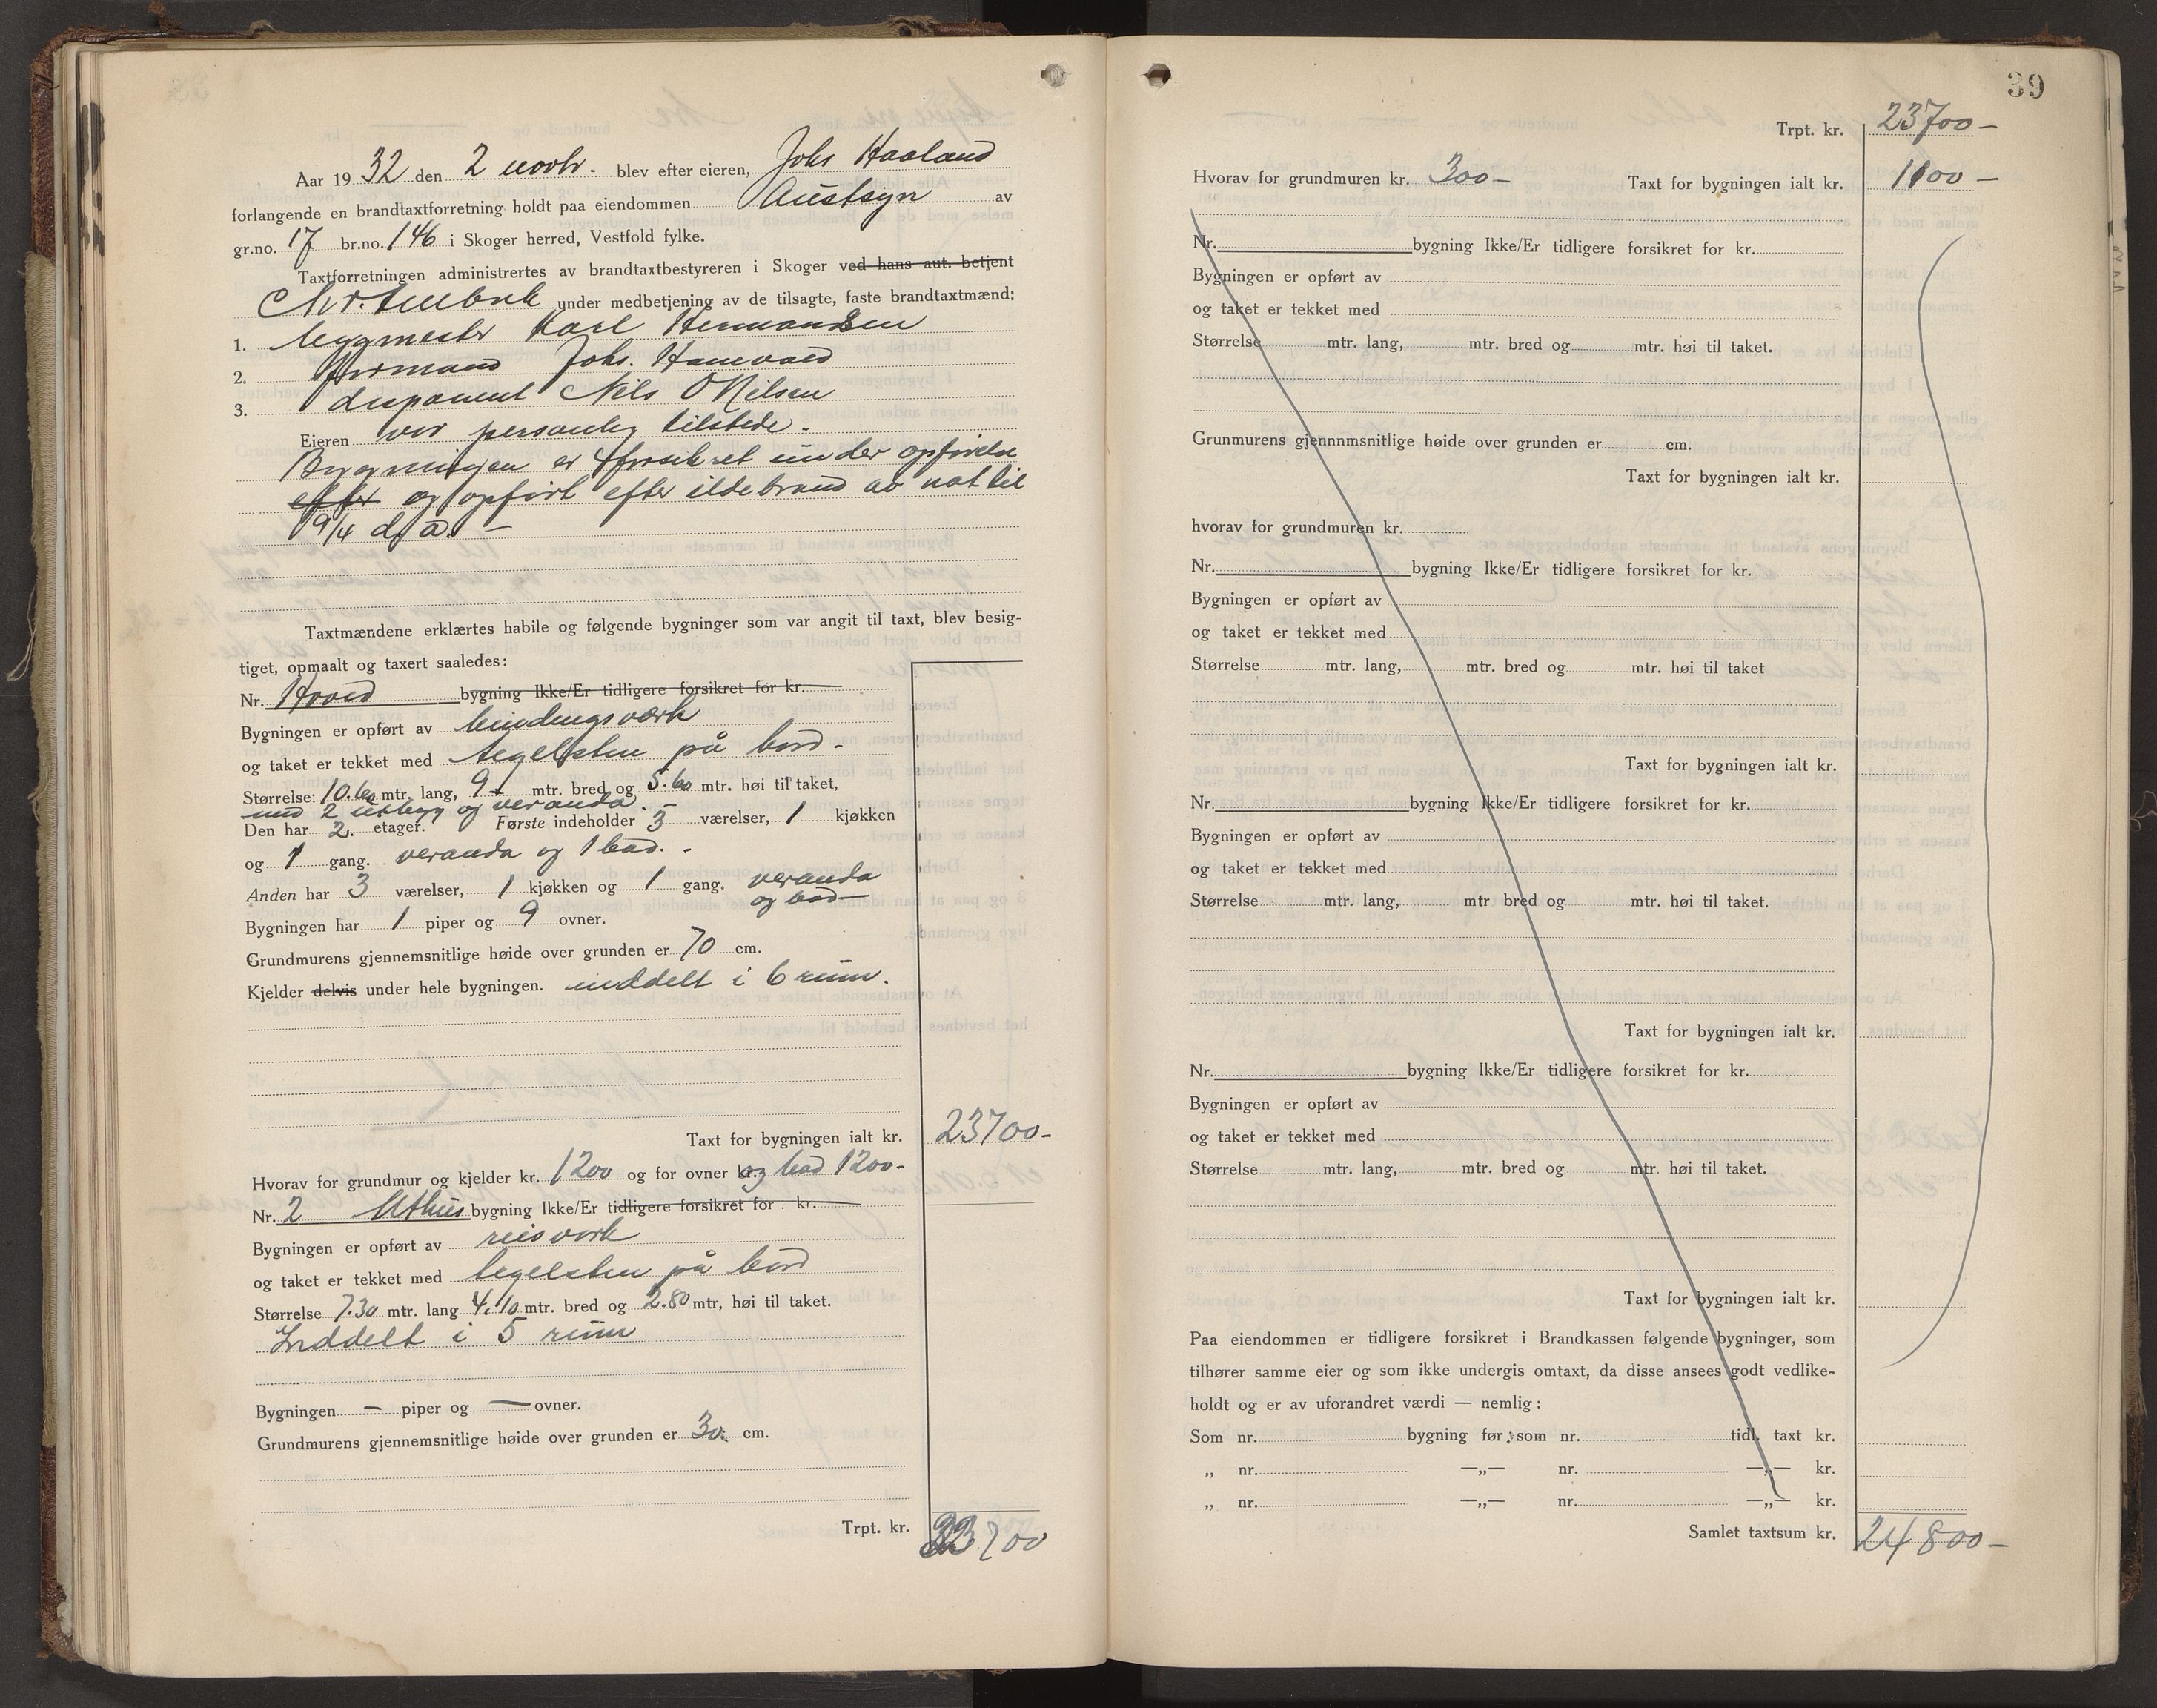 Aar 1932 den 2 novbr. blev efter eieren, Johs Haaland
forlangende en brandtaxtforretning holdt paa eiendommen Austsyn av
gr.no. 17 br.no. 146 i Skoger herred, Vestfold fylke.
Taxtforretningen administrertes av brandtaxtbestyreren i Skoger ved hans aut. betjent
under medbetjening av de tilsagte, faste brandtaxtmænd:
1. byggmester Karl Hermansen
2. formand Johs. Hanevold
3. disponent Nils O Nilsen
Eieren var personlig tilstede.
Bygningen er forsikret under opførelse
efter og opført efter ildebrand av nat til
19/4 d.å. —
Taxtmændene erklærtes habile og følgende bygninger som var angit til taxt, blev besig-
tiget, opmaalt og taxert saaledes:
Nr. Hoved bygning Ikke/Er tidligere forsikret for kr.
Bygningen er opført av bindingsverk
og taket er tekket med tegelsten på bord -
Størrelse: 10.60 mtr. lang, 9 - mtr. bred og 5.60 mtr. høi til taket,
med 2 utbygg og veranda.
Den har 2. etager. Første indeholder 5 værelser, 1 kjøkken
og 1 gang. veranda og 1 bad. -
Anden har 3 værelser, 1 kjøkken og 1 gang. veranda
og bad
Bygningen har 1 piper og 9 ovner.
Grundmurens gjennemsnitlige høide over grunden er 70 cm.
Kjelder delvis under hele bygningen. inddelt i 6 rum.
Taxt for bygningen ialt kr. 23700-
Hvorav for grundmur og kjelder kr. 1200 og for ovner kr. og bad 1200-
Nr. 2 Uthus bygning Ikke/Er tidligere forsikret for kr.
Bygningen er opført av reisverk
og taket er tekket med tegelsten på bord
Størrelse 7.30 mtr. lang 4.10 mtr. bred og 2.80 mtr, høi til taket.
Inddelt i 5 rum
Bygningen — piper og — ovner.
Grundmurens gjennemsnitlige høide over grunden er 30. cm.
Trpt. kr. 23700
39
Trpt. kr. 23700-
Hvorav for grundmuren kr. 300- Taxt for bygningen ialt kr. 1100-
Nr. bygning Ikke/Er tidligere forsikret for kr.
Bygningen er opført av
og taket er tekket med
Størrelse mtr. lang, mtr. bred og mtr. høi til taket.
Grunmurens gjennnmsnitlige høide over grunden er cm.
Taxt for bygningen ialt kr.
hvorav for grundmuren kr.
Nr. bygning Ikke/Er tidligere forsikret for kr.
Bygningen er opført av
og taket er tekket med
Størrelse mtr. lang, mtr. bred og mtr. høi til taket
Taxt for bygningen ialt kr.
Nr. bygning Ikke/Er tidligere forsikret for kr.
Bygningen er opført av
og taket er tekket med
Størrelse mtr. lang, mtr bred og mtr. høi til taket.
Taxt for bygningen ialt kr.
Nr. bygning Ikke/Er tidligere forsikret for kr.
Bygningen er opført av
og taket er tekket med
Størrelse mtr. lang, mtr. bred og mtr. høi til taket.
Taxt for bygningen ialt kr.
Paa eiendommen er tidligere forsikret i Brandkassen følgende bygninger, som
tilhører samme eier og som ikke undergis omtaxt, da disse ansees godt vedlike-
holdt og er av uforandret værdi — nemlig:
Som nr. bygning før som nr. tidl. taxt kr.
„ nr. —„— nr. —„— kr.
„ nr. —„— nr. —„— kr.
Samlet taxtsum kr. 24800-